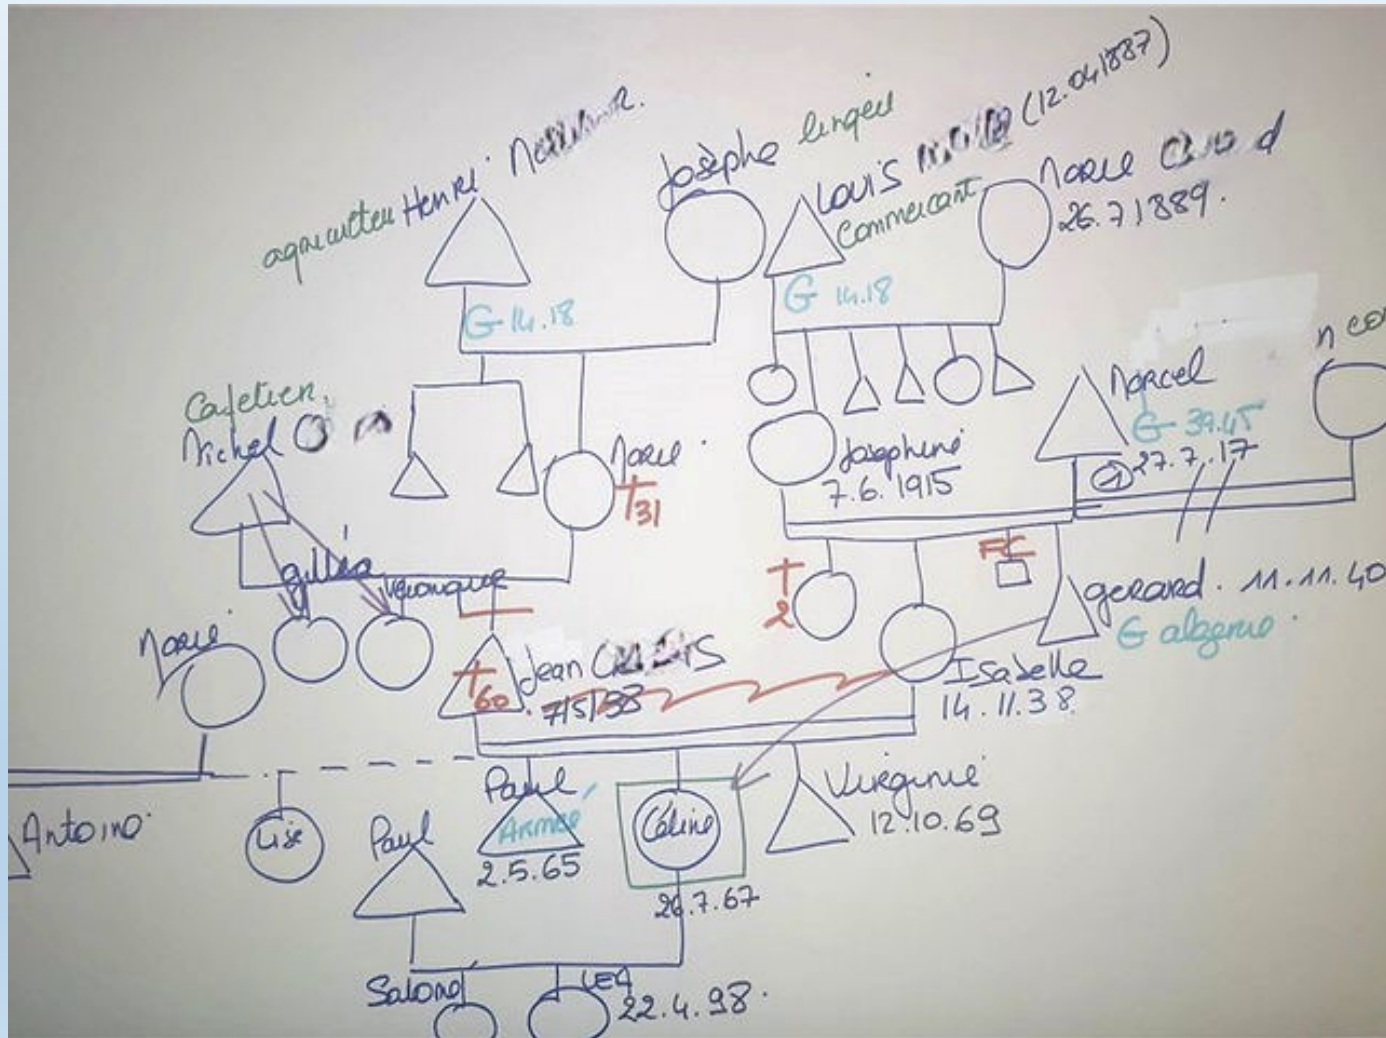 agriculteur Henri
Josèphe lingeu
Louis (12.041887)
Commercant
Marie d
26.71889.
G 14.18
G 14.18
n co
Marcel
G 39.45
① 27.7.17
Cafetier.
Michel
Marie
†31
Joséphine
7.6.1915
gilléa
Véronique
†
2
FC
gerard. 11.11.40
G algerie.
Marie
Jean
†60
7/5/38
Isabelle
14.11.38
Antoine
Lise
Paul
Paul
Armée
2.5.65
Céline
26.7.67
Virginie
12.10.69
Salomé
LEA
22.4.98.